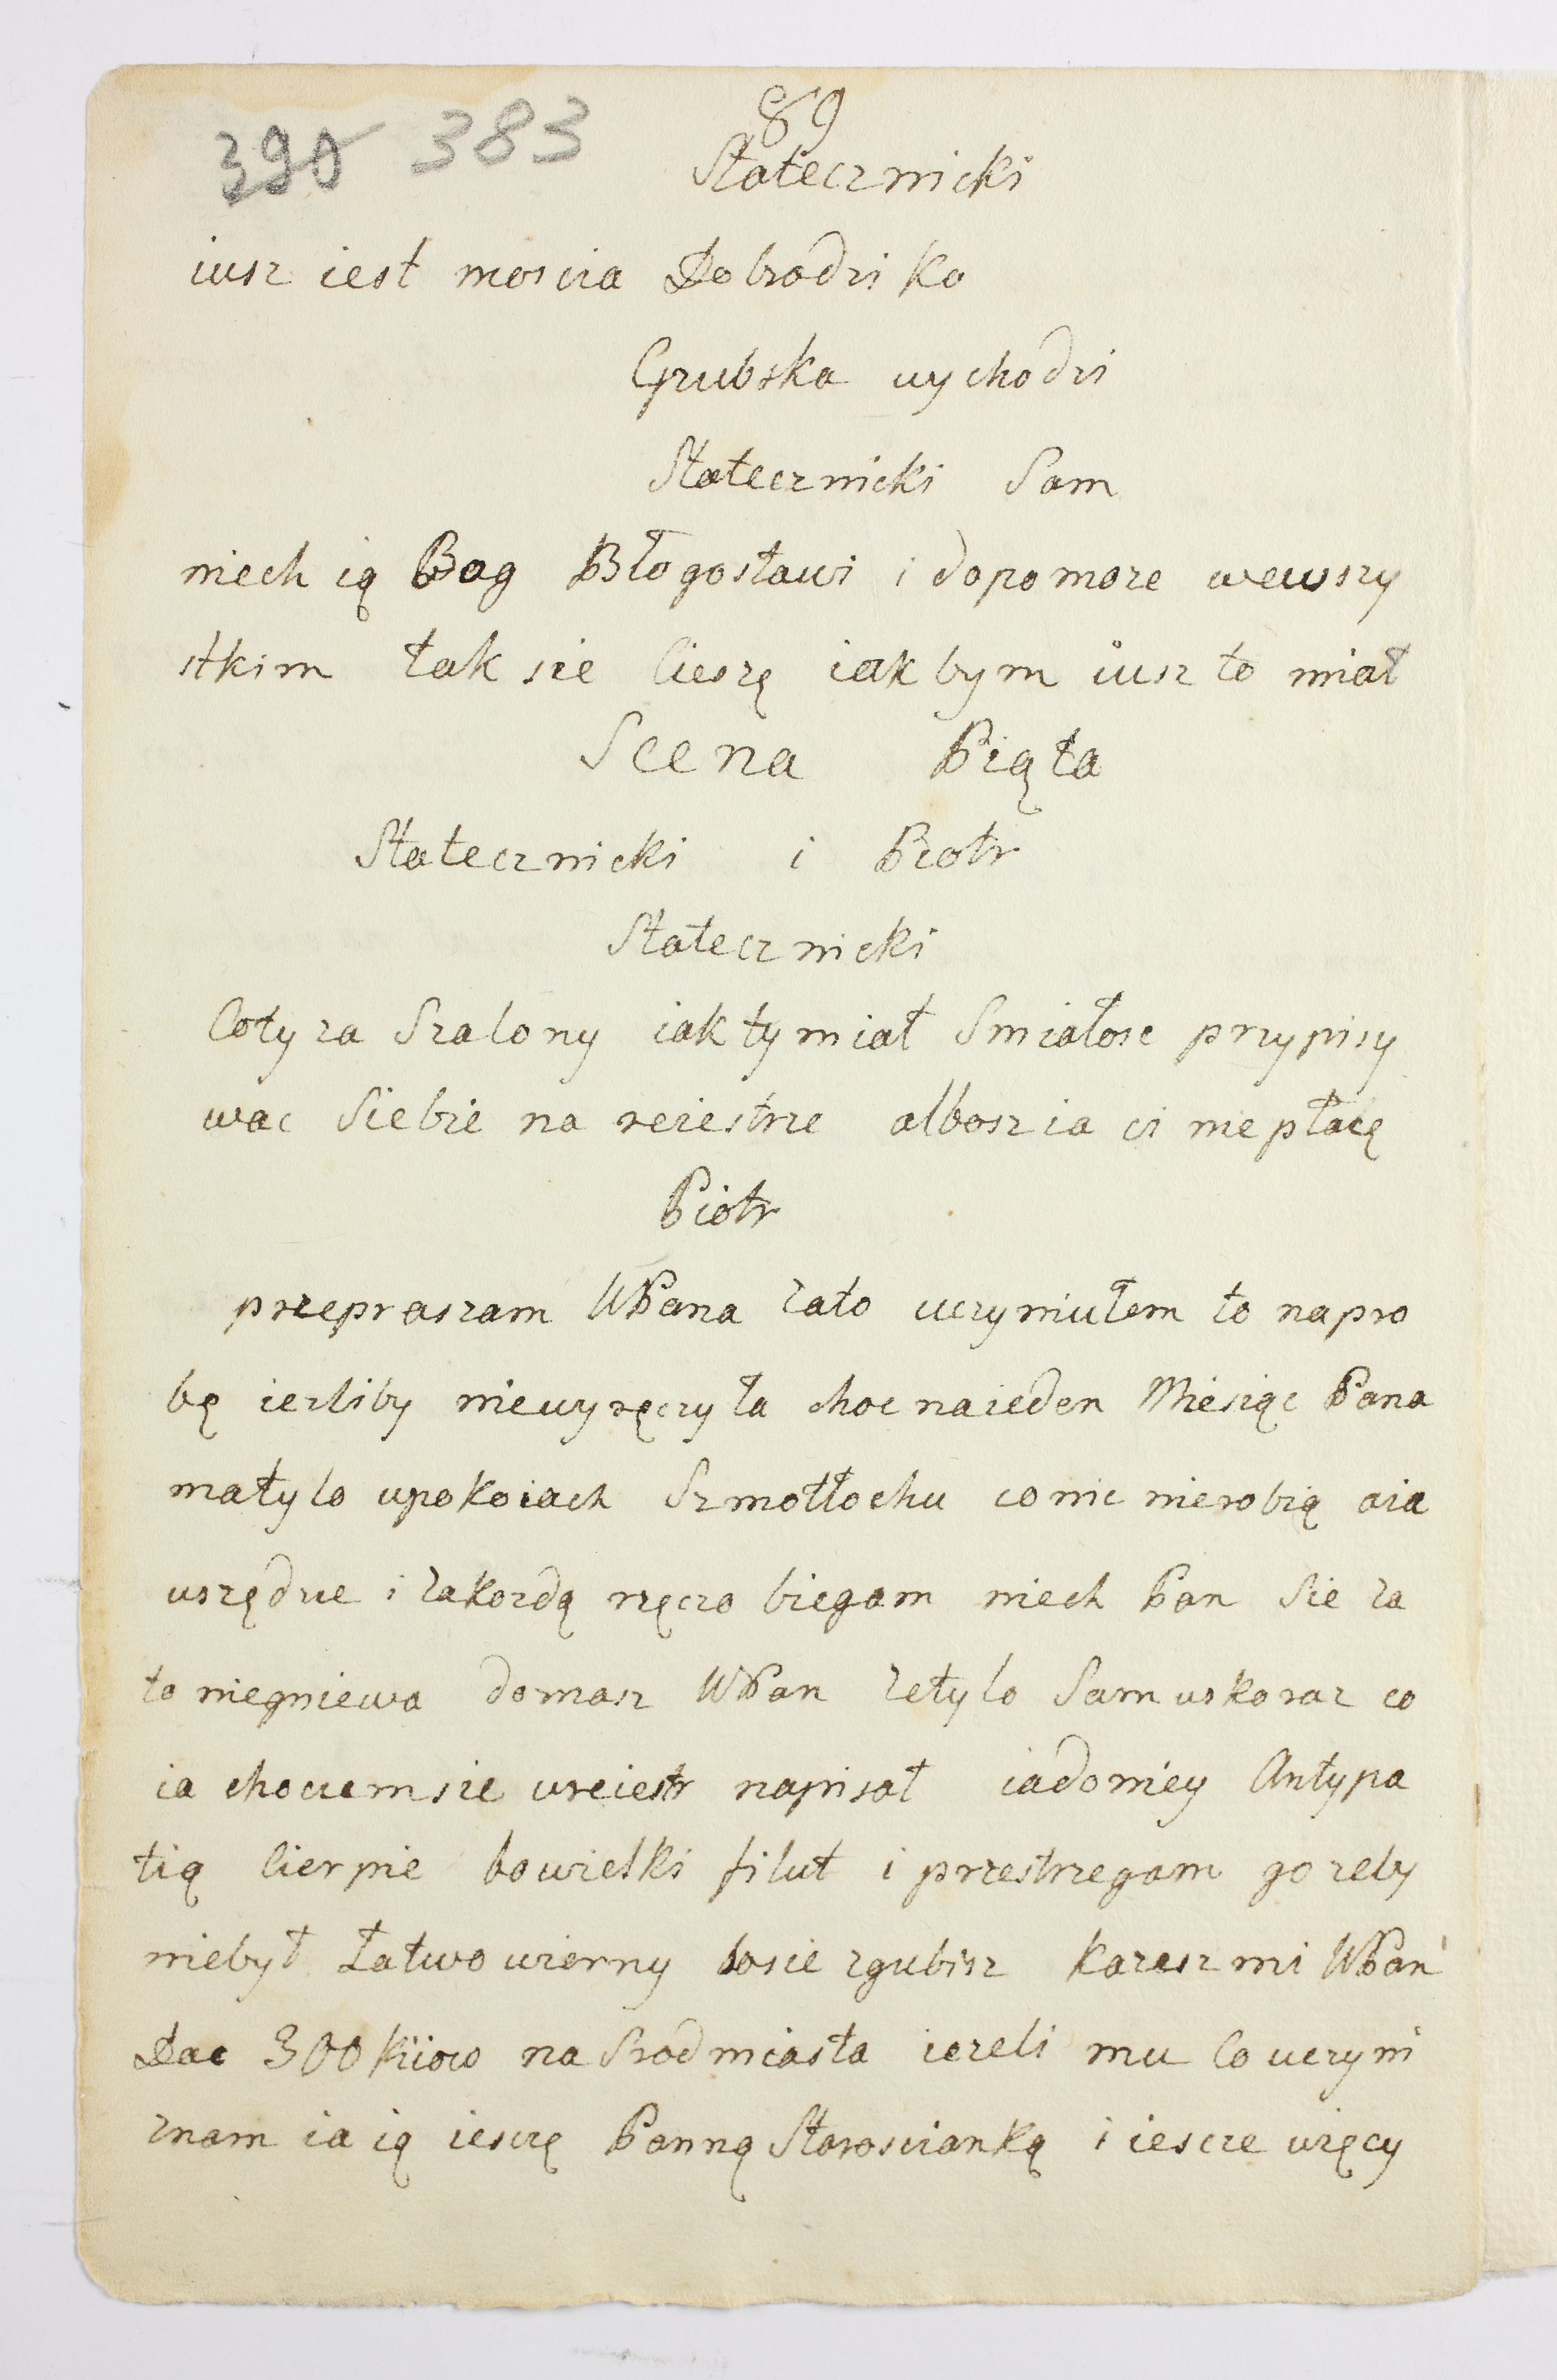 89
390 383
Statecznicki
iusz iest moscia Dobrodziko
Grubska wychodzi
Statecznicki Sam
niech ią Bog Błogosławi i dopomoze wewszy
stkim tak sie Cieszę iakbym iusz to miał
Scena Piąta
Statecznicki i Piotr
Statecznicki
Coty za Szalony iak ty miał Smiałosc przypisy
wac Siebie na reiestrze albosz ia ci niepłacę
Piotr
przepraszam WPana zato uczyniułem to napro
bę iezliby niewyręczyła choc naieden Miesiąc Pana
matylo upokoiach Szmotłochu conic nierobią aia
uszędzie i zakozdą rzęczo biegam niech Pan Sie za
to niegniewa domasz WPan zetylo Sam uskoraz co
ia choczemsie ureiestr napisał iadoniey Antypa
tią Cierpie bowielki filut i przestrzegam go zeby
niebył Łatwowierny bosie zgubisz Karzesz mi WPan
Dac 300 kiiow na Srodmiasta iezeli mu Co uczyni
znam ia ią ieszczę Panną Starosciankę i iescze więcy